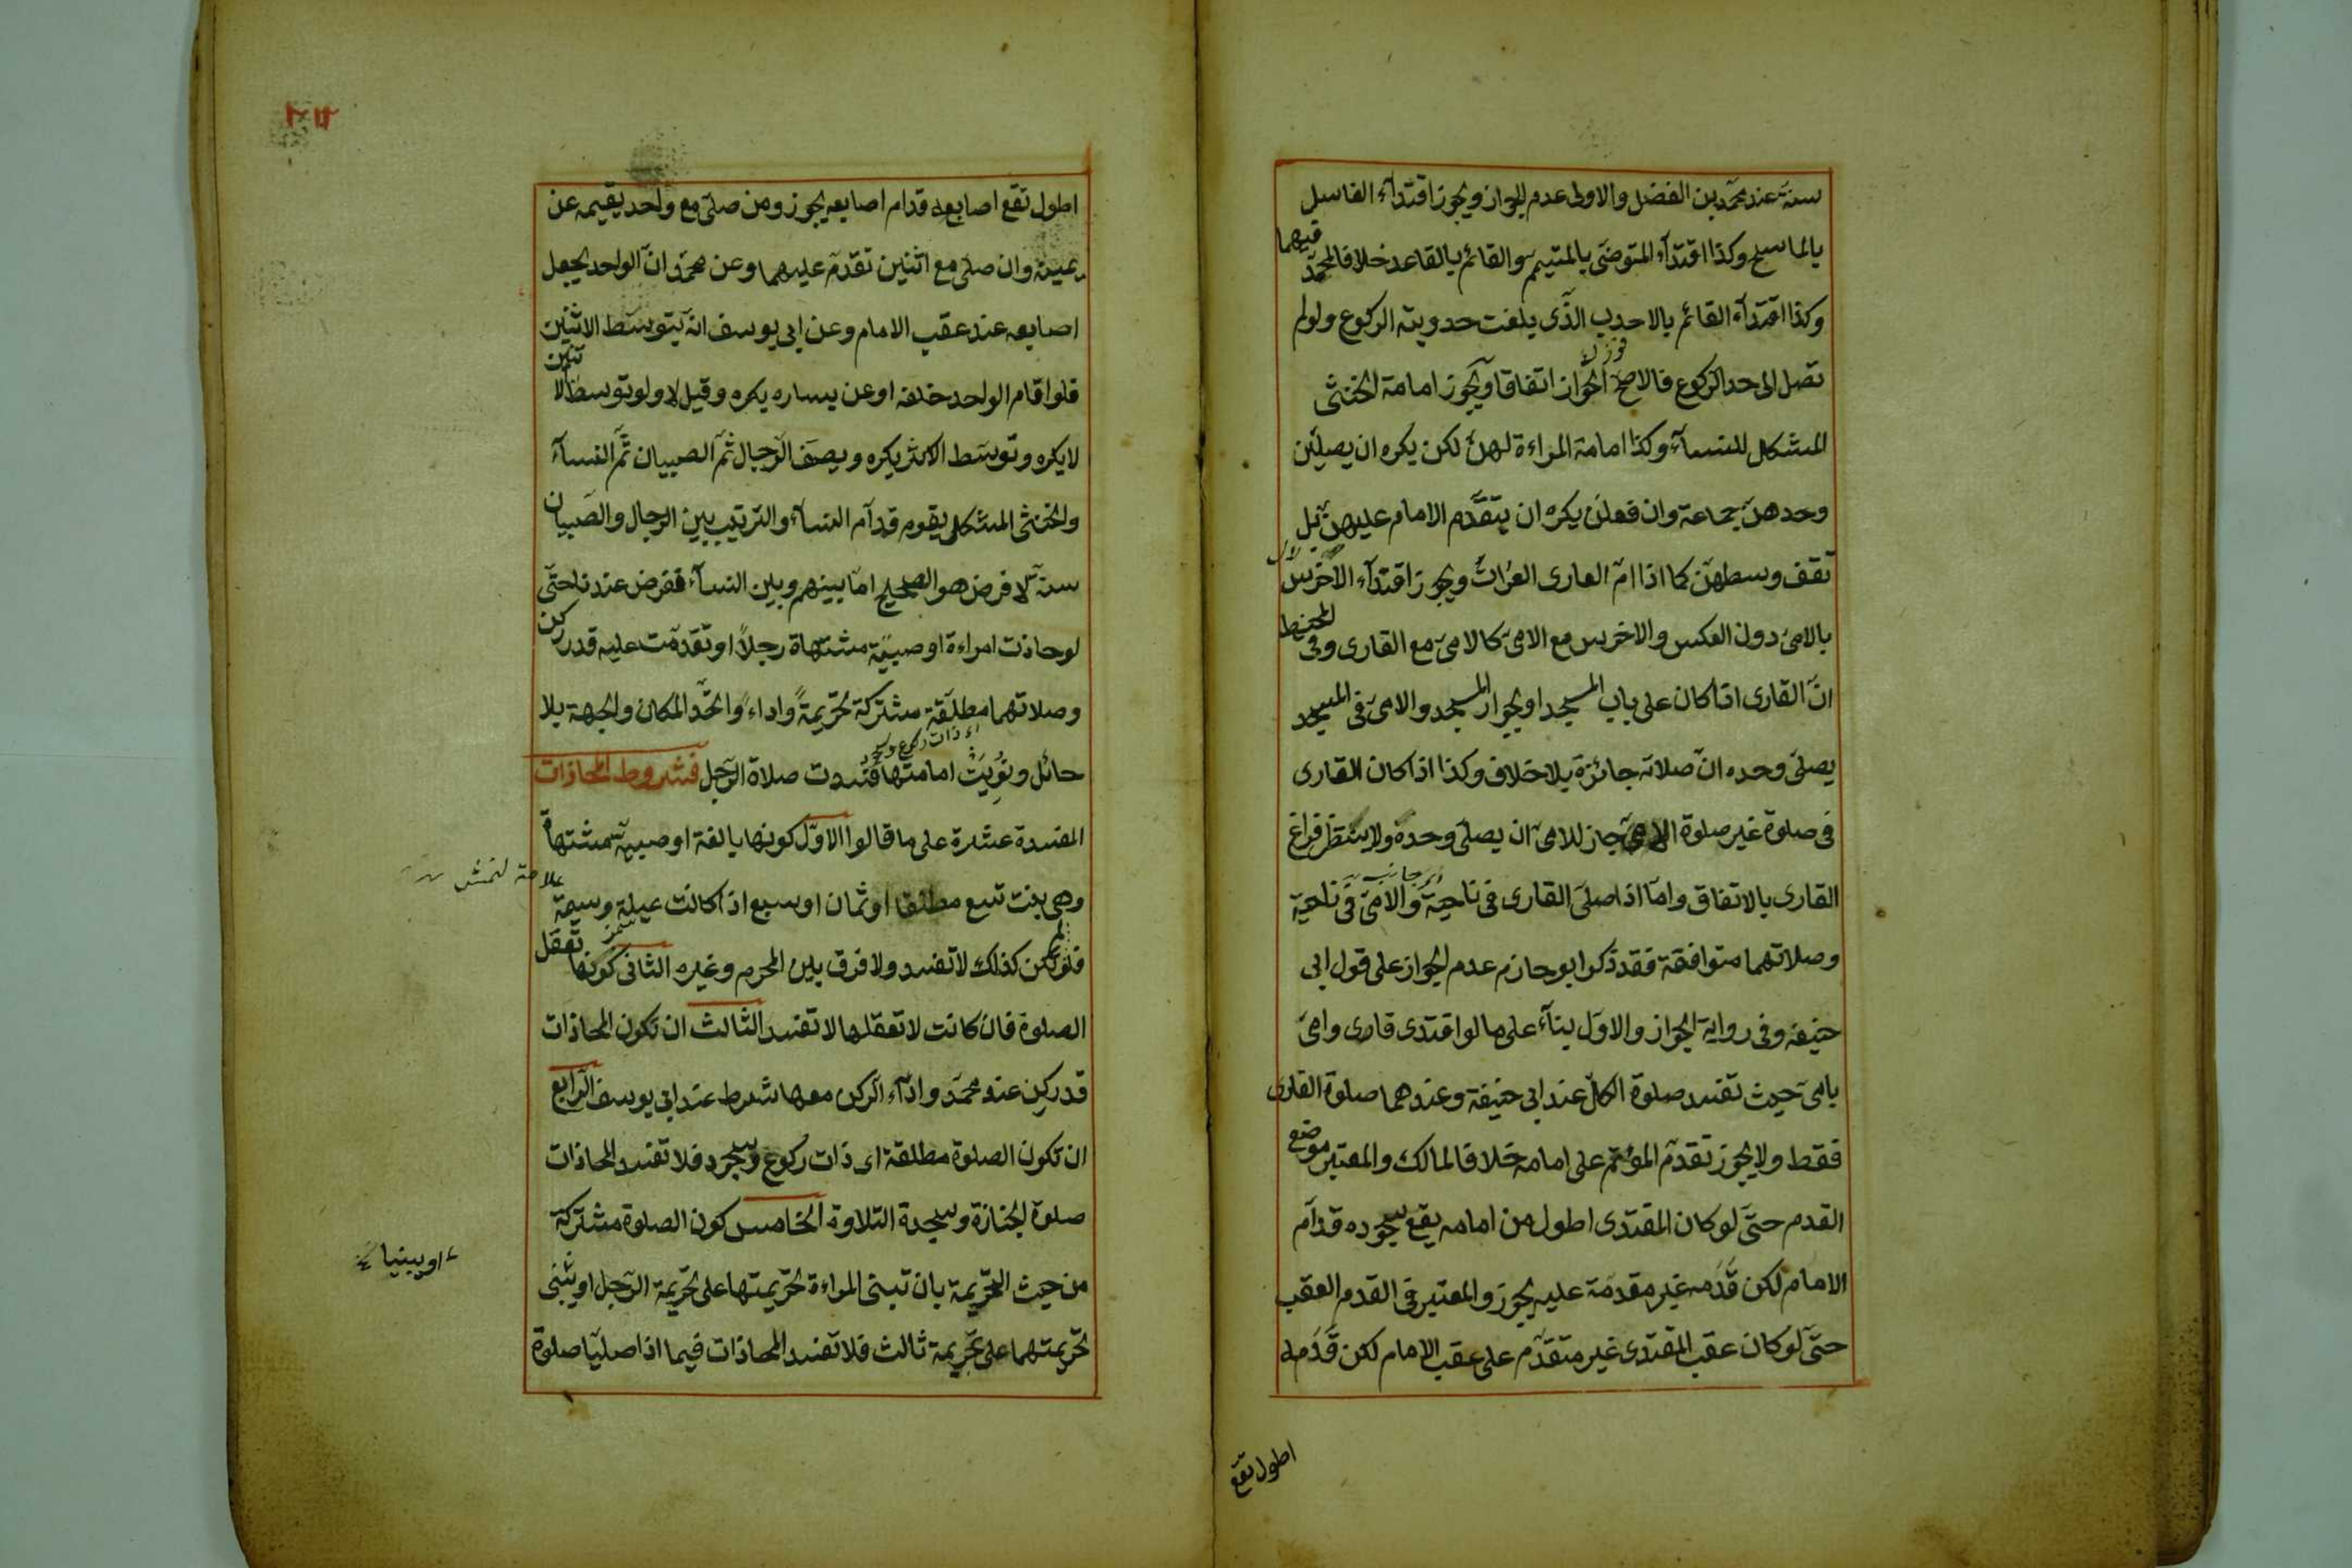 سنة عند محمد بن الفضل والاولى عدم الجواز ويجوز اقتدآء الغاسل
بالماسح وكذا اقتدآء المتوضى بالمتيمم والقائم بالقاعد خلافا لمحمد فيهما
وكذا اقتدآء القائم بالاحدب الذى بلغت حدوبته الركوع ولو لم
تصل الى حد الركوع فالاصح الجواز اتفاقا ويجوز امامة الخنثى
المشكل للنسآء وكذا امامة المراءة لهن لكن يكره ان يصلين
وحدهن جماعة وان فعلن يكره ان يتقدم الامام عليهن بل
تقف وسطهن كما اذا امّ العارى العرات ويجوز اقتدآء الاخرس
بالامى دون العكس والاخرس مع الامى كالامى مع القارى وفى المحيط
ان القارى اذا كان على باب المسجد او بجوار المسجد والامى فى المسجد
يصلى وحده ان صلاته جائزة بلا خلاف وكذا اذا كان القارى
فى صلوة غير صلوة الامى جاز للامى ان يصلى وحده ولا ينتظر فراغ
القارى بالاتفاق واما اذا صلى القارى فى ناحية والامى فى ناحية
وصلاتهما متوافقة فقد ذكر ابو حازم عدم الجواز على قول ابى
حنيفه وفى رواية الجواز والاول بنآء على ما لو اقتدى قارى وامى
بامى حيث تفسد صلوة الكل عند ابى حنيفة وعندهما صلوة القارى
فقط ولا يجوز تقدم المؤتم على امامه خلافا لمالك والمعتبر موضع
القدم حتى لو كان المقتدى اطول من امامه يقع سجوده قدام
الامام لكن قدمه غير مقدمة عليه يجوز والمعتبر فى القدم العقب
حتى لو كان عقب المقتدى غير متقدم على عقب الامام لكن قدمه
اطول تقع
اطول تقع اصابعه قدام اصابعه يجوز ومن صلى مع واحد يقيمه عن
يمينه وان صلى مع اثنين تقدم عليهما وعن محمد ان الواحد يجعل
اصابعه عند عقب الامام وعن ابى يوسف انه يتوسط الاثنين
فلو اقام الواحد خلفه او عن يساره يكره وقيل لا ولو توسط الاثنين
لا يكره وتوسط الاكثر يكره ويصف الرجال ثم الصبيان ثم النسآء
والخنثى المشكل يقوم قدام النسآء والترتيب بين الرجال والصبيان
سنة لا فرض هو الصحيح اما بينهم وبين النسآء ففرض عندنا حتى
لو حاذت امراءة او صبية مشتهاة رجلا او تقدمت عليه قدر ركن
وصلاتهما مطلقة مشتركة تحريمة واداء واتحد المكان والجهة بلا
اى ذات ركوع وسجود
حائل ونويت امامتها فسدت صلاة الرجل فشروط المحاذات
المفسدة عشرة على ما قالوا الاول كونها بالغة او صبية مشتهاة
وهى بنت تسع مطلقا او ثمان او سبع اذا كانت عبلة وسيمة
فلو لم تكن كذلك لا تفسد ولا فرق بين المحرم وغيره الثانى كونها تعقل
الصلوة فان كانت لا تعقلها لا تفسد الثالث ان تكون المحاذات
قدر ركن عند محمد وادآء الركن معها شرط عند ابى يوسف الرابع
ان تكون الصلوة مطلقة اى ذات ركوع وسجود فلا تفسد المحاذات
صلوة الجنازة وسجدة التلاوة الخامس كون الصلوة مشتركة
من حيث التحريمة بان تبنى المراءة تحريمتها على تحريمة الرجل او يبنى
تحريمتهما على تحريمة ثالث فلا تفسد المحاذات فيما اذا صليا صلوة
او يبنيا